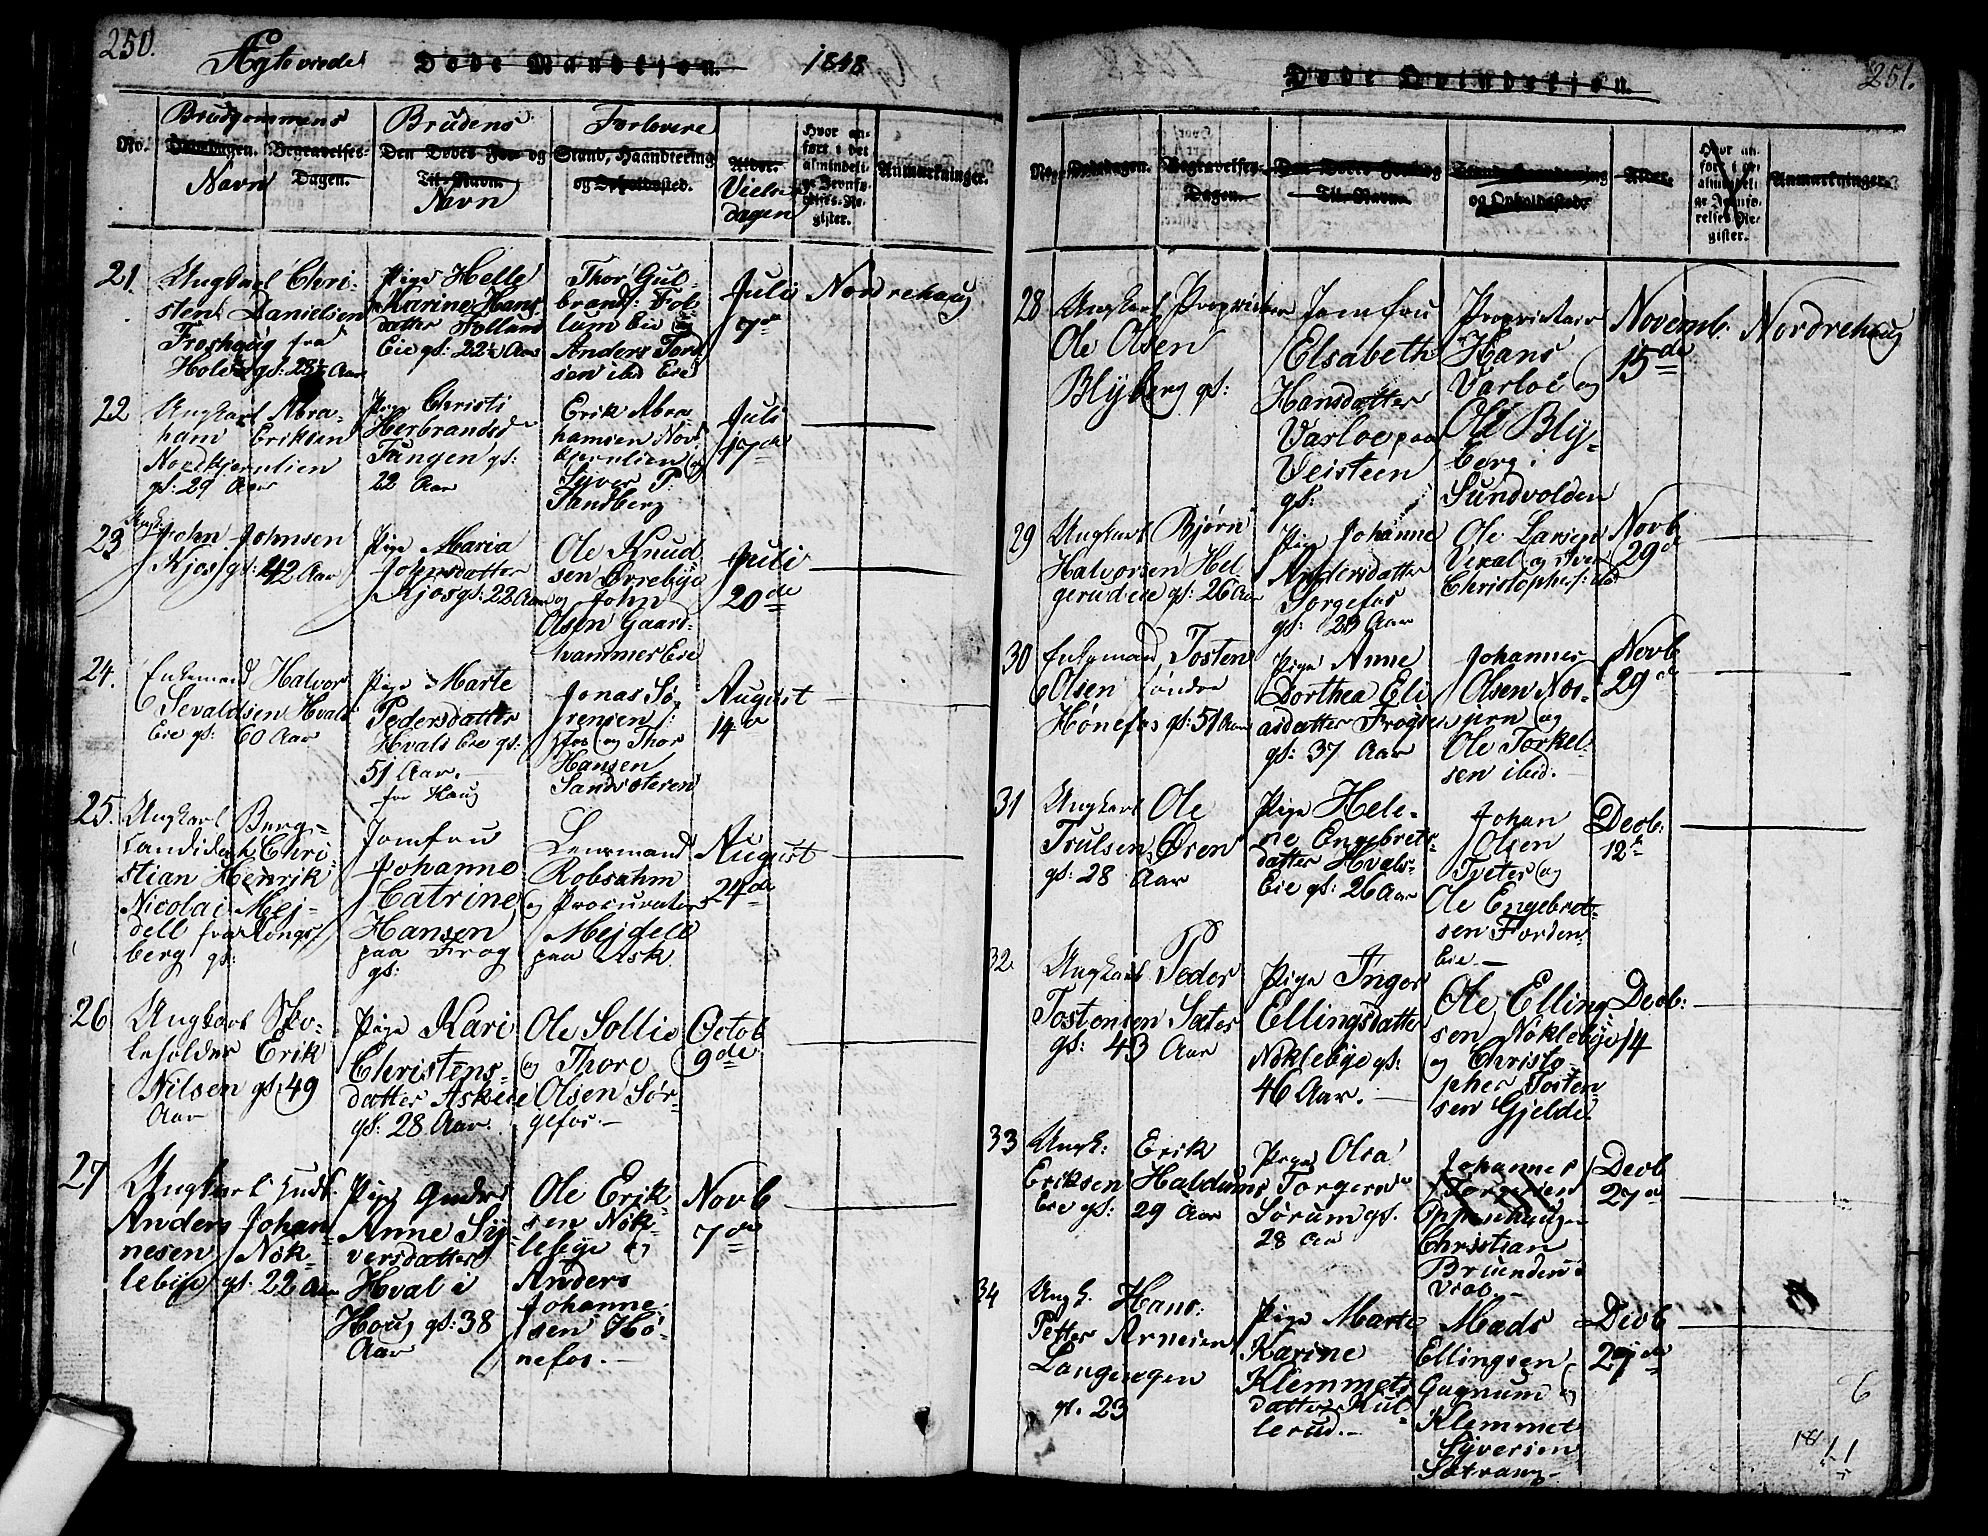 250.
Ægteviede
Døde Mandkjøn.
1848
Brudgommens
Brudens
Forlovere
No.
Dødsdagen.
Begravelses-
Dagen.
Navn
Den Dødes For- og
Til-Navn.
Navn
Stand, Haandtering
og Opholdssted.
Alder.
Vielses
dagen
Hvor an-
ført i det
almindeli-
ge Jevnfø-
relses-Re-
gister.
Anmærkninger.
21. Ungkarl Chri-
sten Danielsen
Froshoug fra
Hole gf: 23½ Aar
Pige Helle
Karine Hans
datter Follum
Eie gf: 22½ Aar
Thor Gul-
brands: Fol
lum Eie og
Anders Tord
sen ibd Eie
Juli
7de
Nordrehaug
22 Ungkarl Abra-
ham Eriksen
Nordkjernlien
gf: 29 Aar
Pige Christi
Herbrandsd
Tangen gf:
22 Aar
Erik Abra
hamsen Nord
kjernlien og
Syver P.
Sandberg
Juli
17de
23 Ungk. John Johnsen
Kjos gf: 42 Aar
Pige Maria
Johnsdatter
Kjos gf: 22 Aar
Ole Knud
sen Ørrebye
og John
Olsen Gaard-
hammer Eie
Juli
20de
24. Enkemand Halvor
Sevaldsen Hvals
Eie gf: 60 Aar
Pige Marte
Pedersdatter
Hvals Eie gf:
51 Aar.
for Haug
Jonas Sø
rensen
fos og Thor
Hansen
Sandsæteren
August
14de
25. Ungkarl Berg-
kandidat Chri-
stian Henrik
Nicolai Mej-
dell fra Kongs-
berg gf:
Jomfru
Johanne
Catrine
Hansen
paa Frog
gf:
Lensmand
Robsahm
og Procurator
Mejdell
paa Ask
August
24de
26 Ungkarl Sko-
leholder Erik
Nilsen gf: 49
Aar
Pige Kari
Christens-
datter Askeie
gf: 28 Aar.
Ole Sollie
og Thore
Olsen Sør-
gefos.
Octob
9de
27 Ungkarl
Anders Johan-
nesen Nok-
lebye gf: 22 Aar
Pige
Anne Sy-
versdatter
Hval i
Houg gf: 38
Aar
Ole Erik-
sen Nøk-
lebye og
Anders
Johanne-
sen Hø-
nefos.
Novb
7de
251.
Døde Qvindekjøn.
No.
Dødsdagen.
Begravelses-
Dagen.
Den Dødes For- og
Til-Navn.
Stand, Haandtering
og Opholdssted.
Alder.
Hvor an-
ført i det
almindeli-
ge Jevnfø-
relses-Re-
gister.
Anmærkninger.
28 Ungkarl Proprietær
Ole Olsen
Blyberg gf:
Jomfru
Elsabeth
Hansdatter
Varloe paa
Veisteen
gf:
Proprietair
Hans
Varloe og
Ole Bly-
berg i
Sundvolden
Novemb.
15de
Nordrehaug
29 Ungkarl Bjørn
Halvorsen Hel
gerudeie gf: 26 Aar
Pige Johanne
Andersdatter
Sørgefos
gf: 23 Aar
Ole Larsen
Vexal og Iver
Christophers: ibd
Novb
29d
30 Enkemand Tosten
Olsen Søndre
Hønefos gf: 51 Aar
Pige Anne
Dorthea Eli
asdatter Frogsen
gf: 37 Aar
Johannes
Olsen
og
Ole Torkel-
sen ibid.
Novb
29d
31 Ungkarl Ole
Trulsen Øren
gf: 28 Aar
Pige Hele-
ne Engebrets-
datter Hvals-
Eie gf: 26 Aar
Johan
Olsen
Tveter og
Ole Engebret-
sen Fjorden-
Eie.
Decb:
12te
32. Ungkarl Peder
Tostensen Sæter
gf: 43 Aar
Pige Inger
Ellingsdatter
Nøklebye gf:
46 Aar.
Ole Elling
sen Nøklebye
og Christo-
pher Tosten-
sen Gjelde
Decb:
14
33 Ungk: Erik
Eriksen Haldums
Eie gf: 29 Aar
Pige Olea
Torgersd
Sørum gf.
28 Aar
Johannes
Torgersen
Oppenhaugen
Christian
Vral
Decb
27d
34 Ungk. Hans
Petter Arnesen
gf. 23
Pige Marte
Karine
Klemmets
datter Kul-
lerud.
Mads
Ellingsen
Gagnum og
Klemmet
Syversen
Setrang
Decb
27de
6